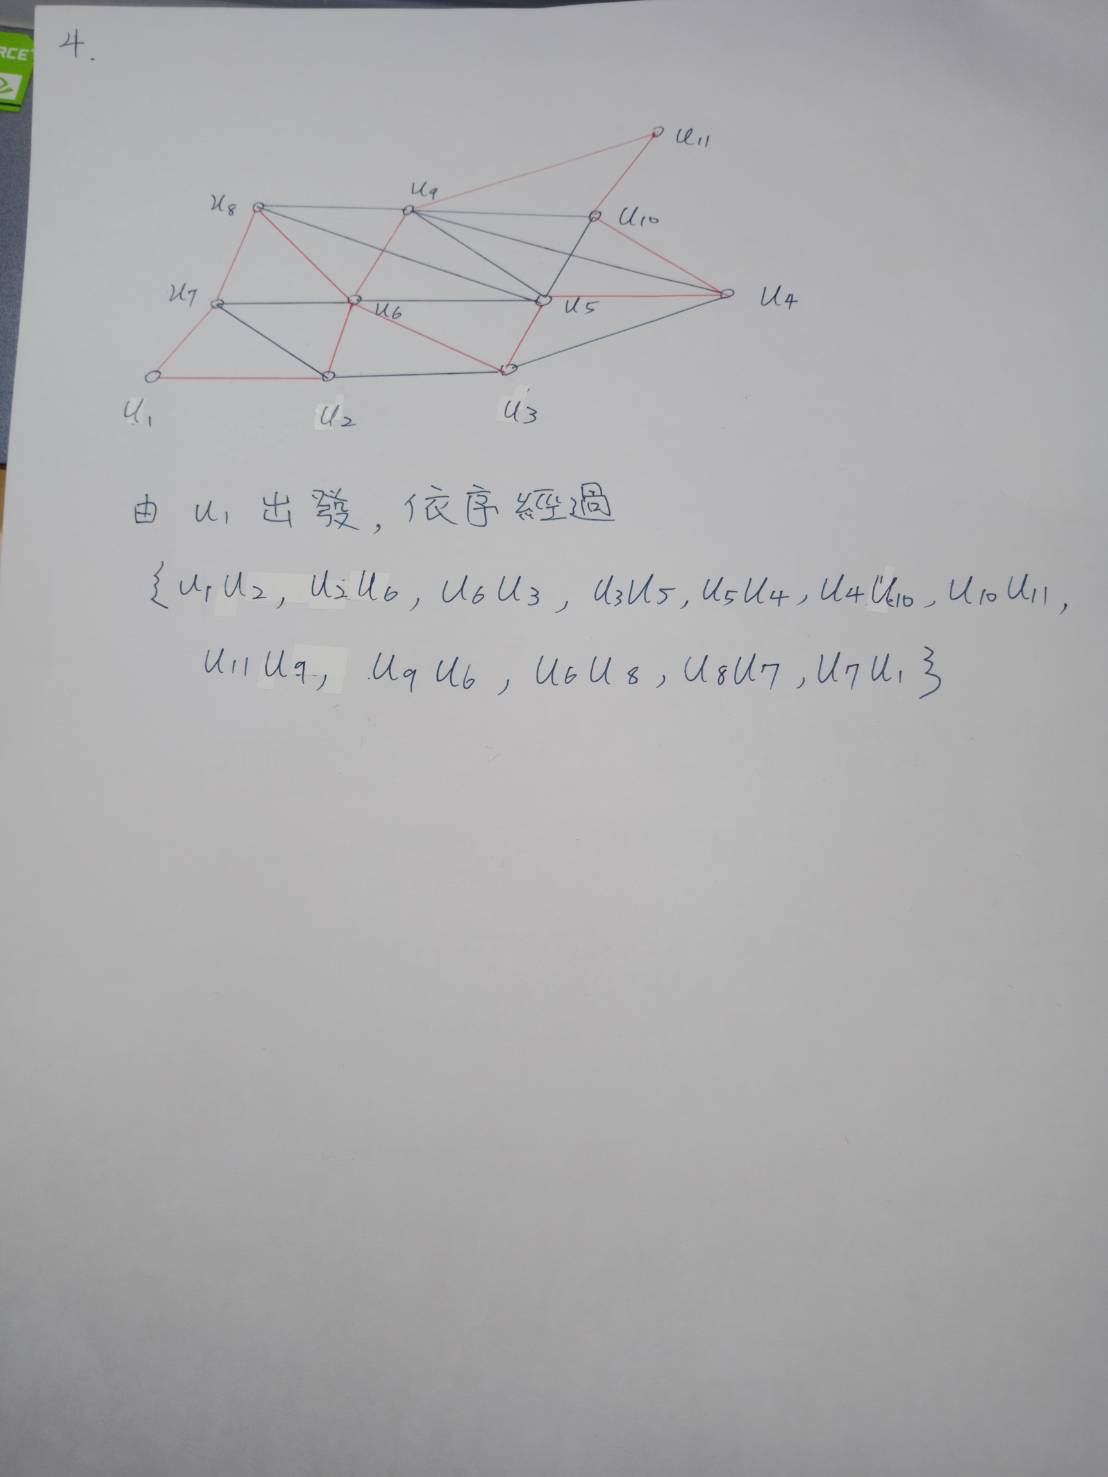 RCE
4.
u₁₁
u₉
u₈
u₁₀
u₇
u₆
u₅
u₄
u₁
u₂
u₃
由 u₁ 出發, 依序經過
{u₁u₂, u₂u₆, u₆u₃, u₃u₅, u₅u₄, u₄u₁₀, u₁₀u₁₁,
u₁₁u₉, u₉u₆, u₆u₈, u₈u₇, u₇u₁}